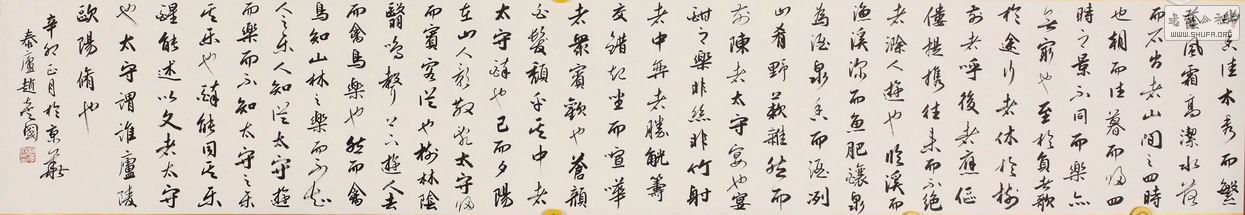 幽香佳木秀而繁
蔭風霜高潔水落
而石出者山間之四時
也朝而往暮而歸四
時之景不同而樂亦
無窮也至於負者歌
於途行者休於樹
前者呼後者應傴
僂提攜往來而不絕
者滁人遊也臨溪而
漁溪深而魚肥釀泉
為酒泉香而酒冽
山肴野蔌雜然而
前陳者太守宴也宴
酣之樂非絲非竹射
者中弈者勝觥籌
交錯起坐而喧嘩
者眾賓歡也蒼顏
白髮頹乎其中者
太守醉也已而夕陽
在山人影散亂太守歸
而賓客從也樹林陰
翳鳴聲上下遊人去
而禽鳥樂也然而禽
鳥知山林之樂而不知
人之樂人知從太守遊
而樂而不知太守之樂
其樂也醉能同其樂
醒能述以文者太守
也太守謂誰廬陵
歐陽脩也
辛卯正月於京華
泰廬趙國
WWW.SHUFR.ORG